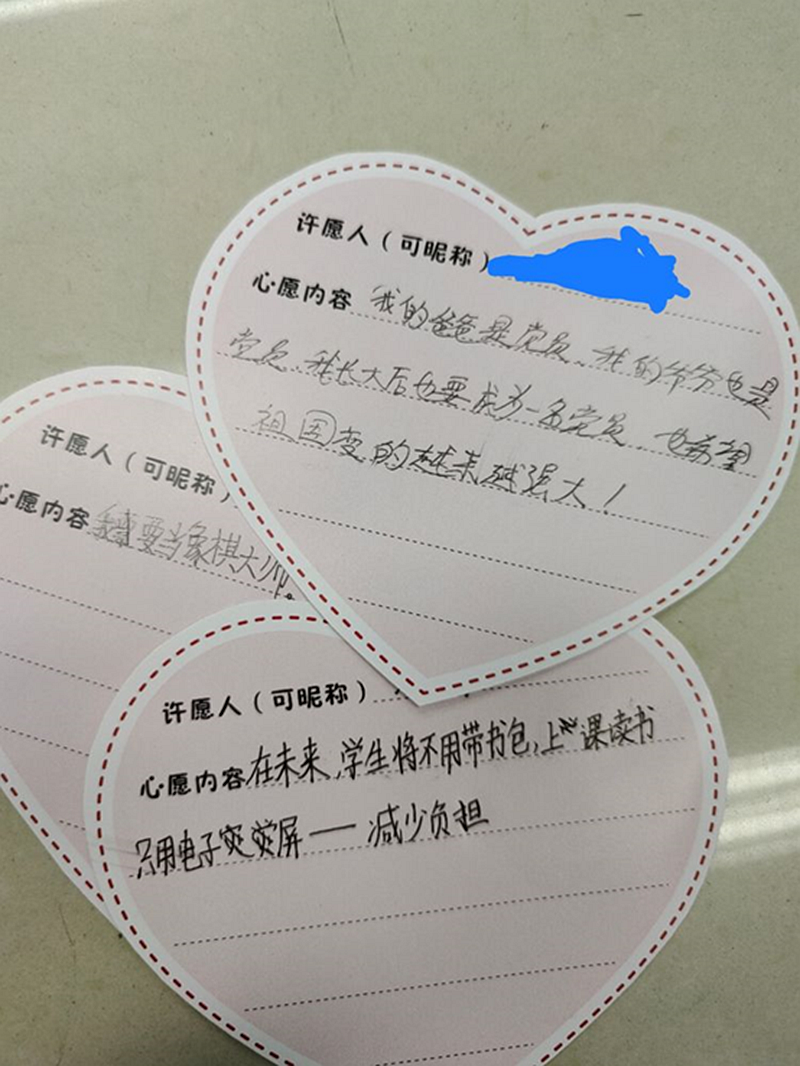 许愿人（可昵称）
心愿内容 我的爸爸是党员、我的爷爷也是
党员、我长大后也要成为一名党员，也希望
祖国变的越来越强大！
许愿人（可昵称）
心愿内容 我要当象棋大师。
许愿人（可昵称）
心愿内容 在未来,学生将不用带书包,上课读书
只用电子荧屏——减少负担